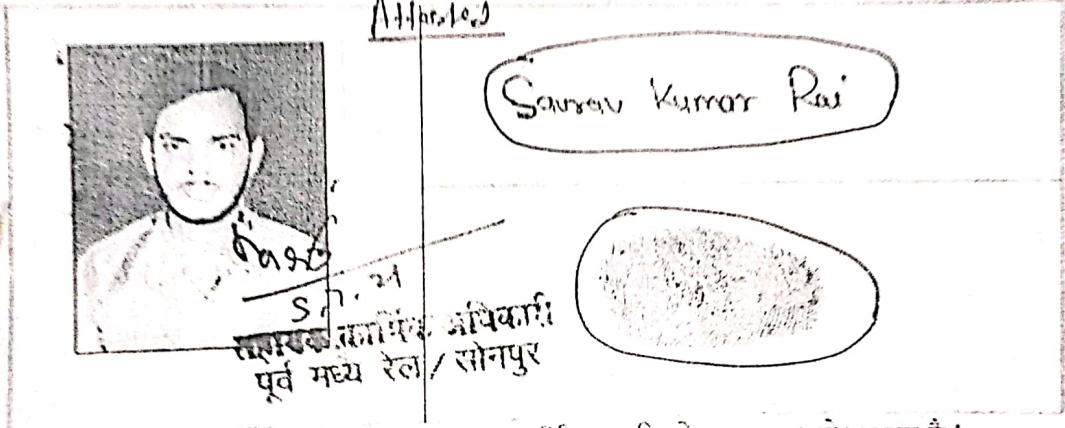 Attested
Saurav Kumar Rai
सहायक कार्मिक अधिकारी
पूर्व मध्य रेल / सोनपुर